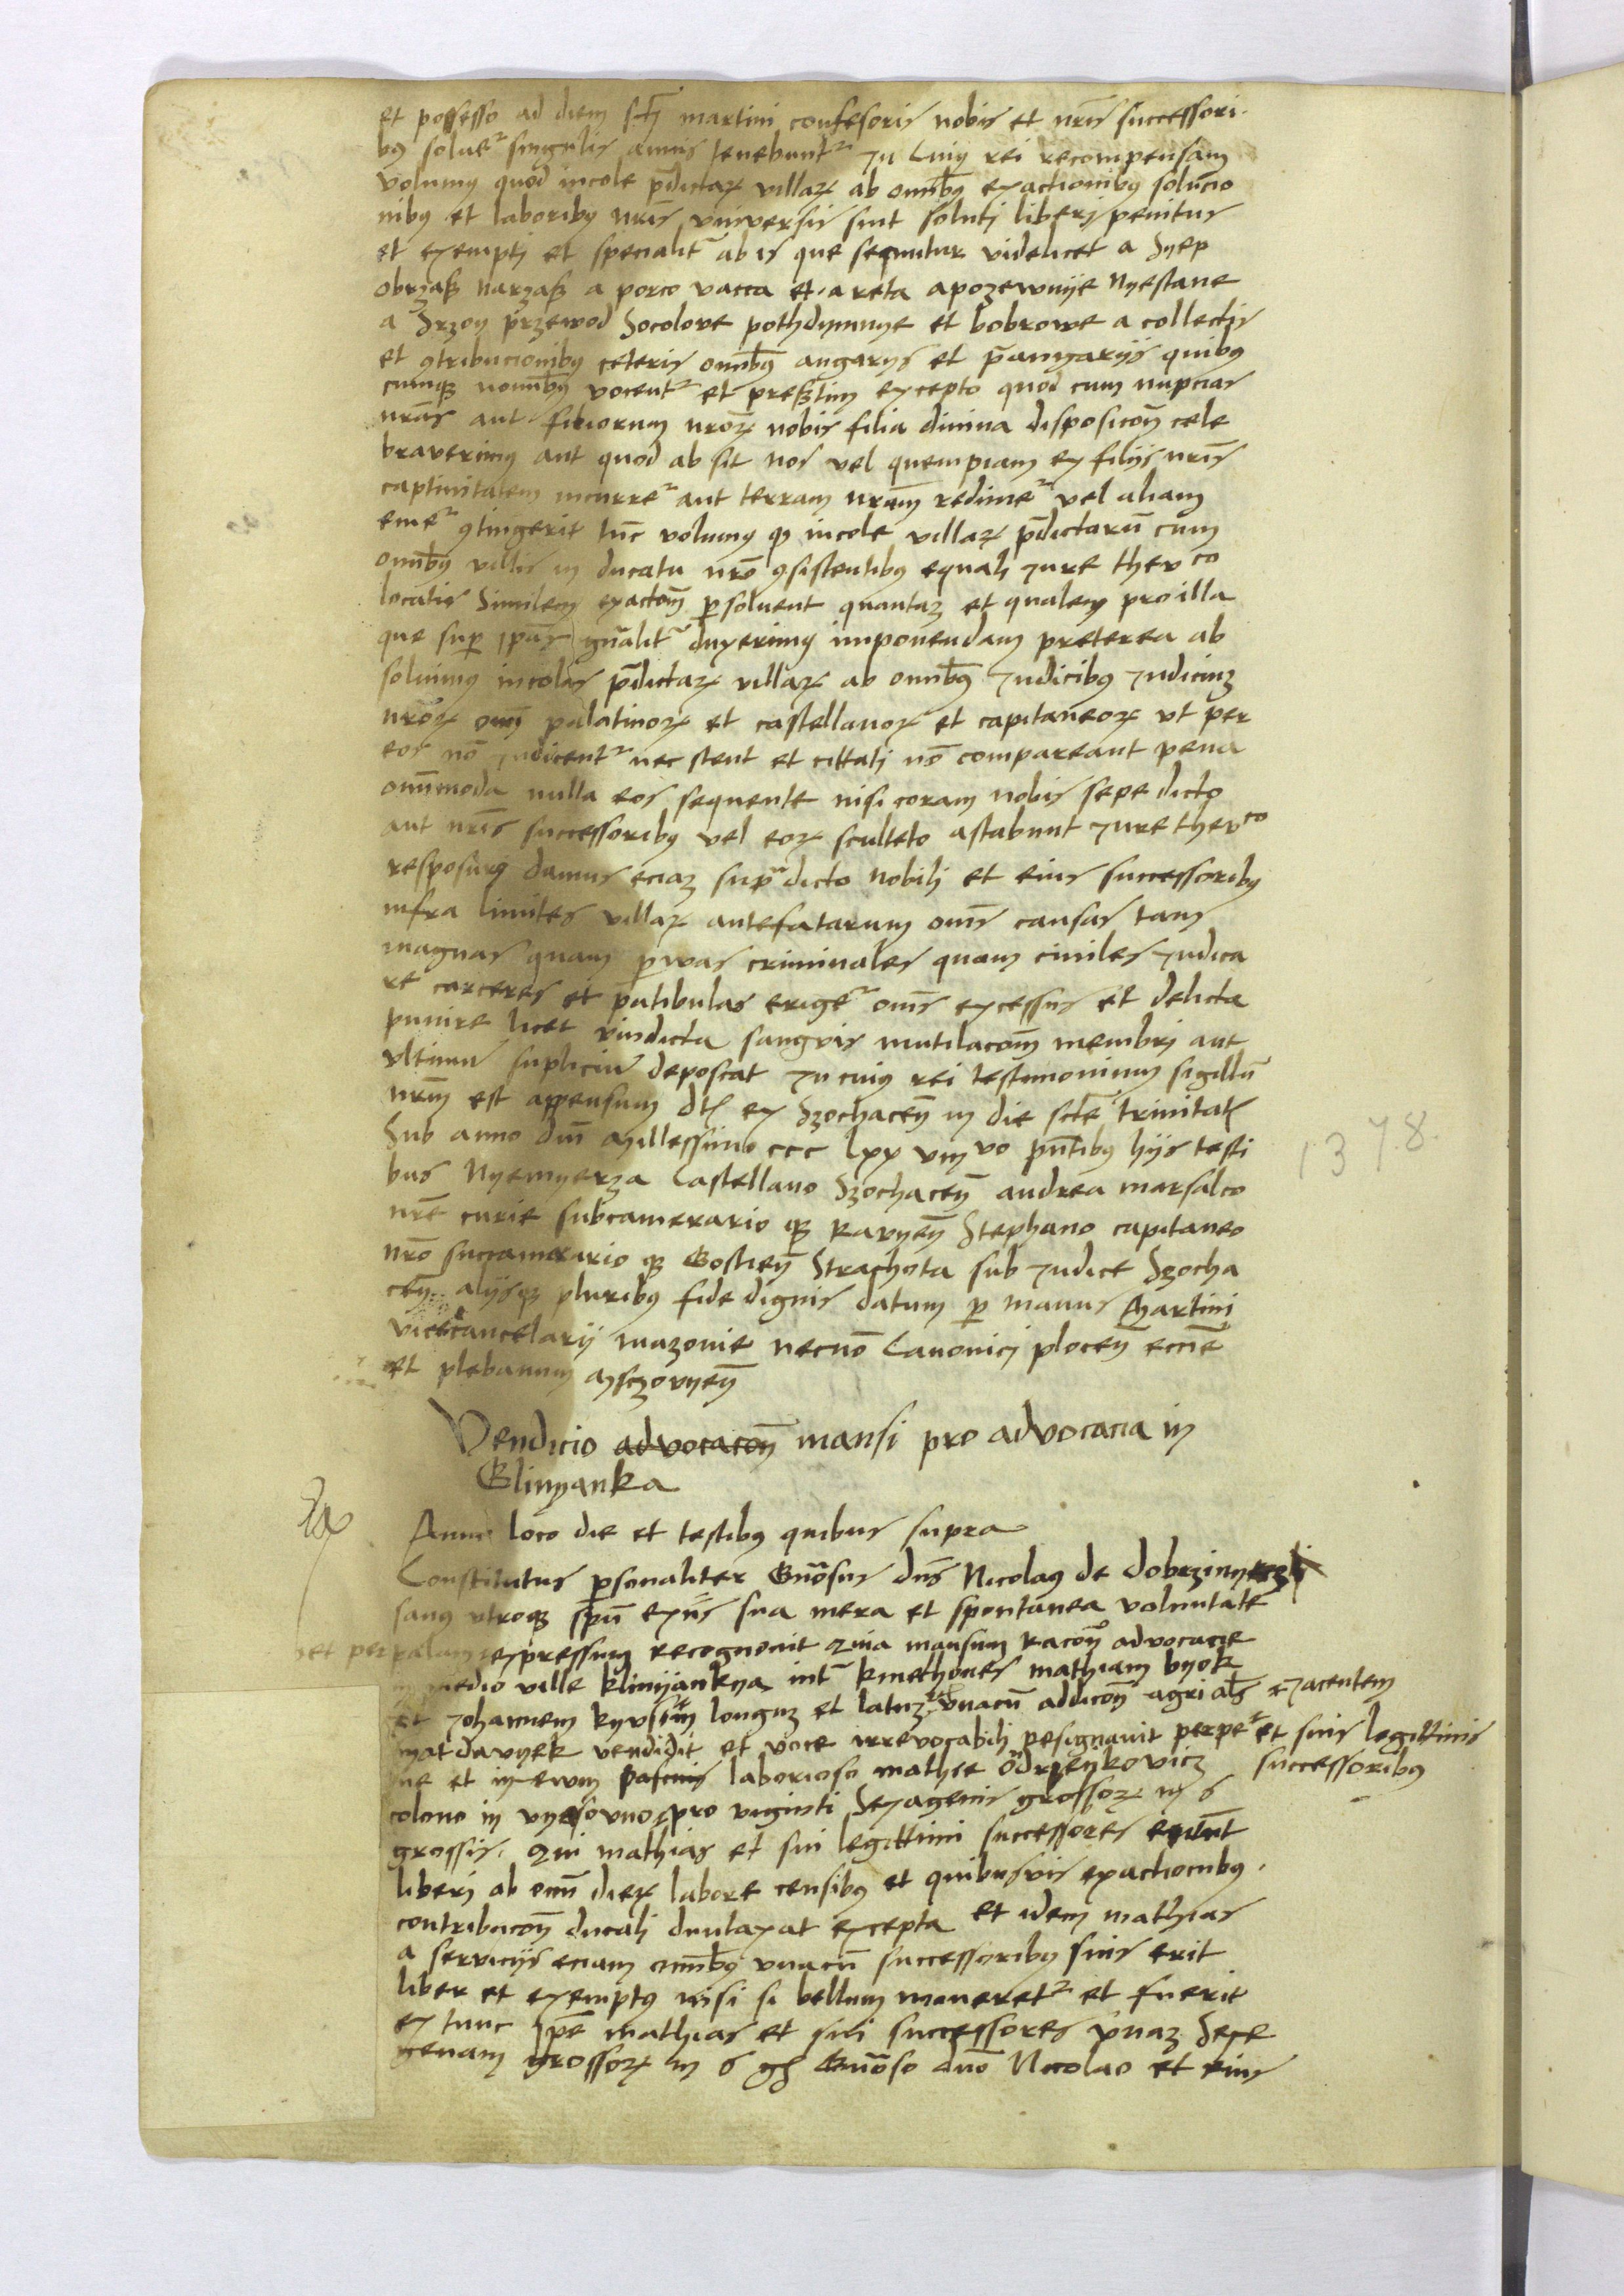 et possesso ad diem scti martini confesoris nobis et nris successori-
bus soluere singulis annis tenebuntur In Cuius rei recompensam
volumus quod incole pdictaꝝ villaꝝ ab omnibus exactionibus solucio
nibus et laboribus nris vniversis sint soluti liberi penitus
et exempti et specialiter ab is que sequntur videlicet a Syep
obrzaß narzaß a porco vacca et areta apozewnye Nyestane
a Srzon przewod Socolove pothdymnye et bobrowe a collectis
et contribucionibus ceteris omnibus angarys et pangariis quibus
cumque nominibus vocentur et presertim excepto quod cum nupcias
nras aut filiorum nroꝝ nobis filia divina disposicone cele
braverimus aut quod ab sit nos vel quempiam ex filiis nris
captivitatem incurrere aut terram nram redimere vel aliam
emere contingerit tunc volumus quod incole villaꝝ pdictarum cum
omnibus villis in ducatu nro consistentibus equali Iure thevco
locatis Similem exactom persoluent quantaz et qualem pro illa
que super ipsas gnaliter duxerimus imponendam preterea ab
soluimus incolas pdictaꝝ villaꝝ ab omnibus Iudicibus Iudiciuz
nroꝝ omni palatinoꝝ et castellanoꝝ et capitaneoꝝ vt per
eos non Iudicentur nec stent et cittati non compareant pena
omnimoda nulla eos sequente nisi coram nobis sepe dicto
aut nris successoribus vel eoꝝ sculteto astabunt Iure thevco
resposuri damus eciaz supra dicto nobili et eius successoribus
infra limites villaꝝ antefatarum omnes causas tam
magnas quam pruas criminales quam civiles Iudica
re carceres et patibulas erigere omnes excessus et delicta
punire licet vindicta sangvis mutilacom membri aut
vltimu supliciu deposcat In cuius rei testimonium sigillu
nrm est appensum dtum ex Szochaceny in die scte trinitatis
Sub anno dni Millessimo ccc lxx viij vo pntibus hiis testi
bus Nyemyerza Castellano Szochaceny andrea marsalco
nre curie subcamerario que Ravyeny Stephano capitaneo
nro succamerario que Gostieny Strachota sub Iudice Szocha
ceny alysque pluribus fide dignis datum per manus Martini
vicecancelarij mazovie necno Canonici ploceny eccie
et plebanum Msczovyeny
1378.
Vendicio advocacom mansi pro advocacia in
Glinyanka
Anno loco die et testibus quibus supra
Constitutus personaliter Gnosus dns Nicolaus de dobrzinyeczsky
sanus vtroque spu exiis sua mera et spontanea voluntate
et per palam expressum recognovit Quia mansum racone advocacie
in medio ville klinyankya inter kmethones mathiam byok
et Iohannem kyvssm longuz et latuz vnacu addicony agri als Iacentem
nat davnyek vendidit et voce irrevocabili resignavit perpe et suis legittimis
tue et in ewm laborioso mathie Odrzenkovicz successoribus
colono in vyessovno pro viginti Sexagenis grossoꝝ in 6
grossis. Qui mathias et sui legittimi successores erunt
liberi ab omni dieꝝ labore censibus et quibusvis exactionibus.
contribucony ducali duntaxat excepta et idem mathias
a serviciis eciam omnibus vnacu successoribus suis erit
liber et exemptus nisi si bellum moveretur et fuerit
ex tunc ipse mathias et sui successores vnaz Sexa
genam grossoꝝ in 6 gs Gnoso dno Nicolao et eius